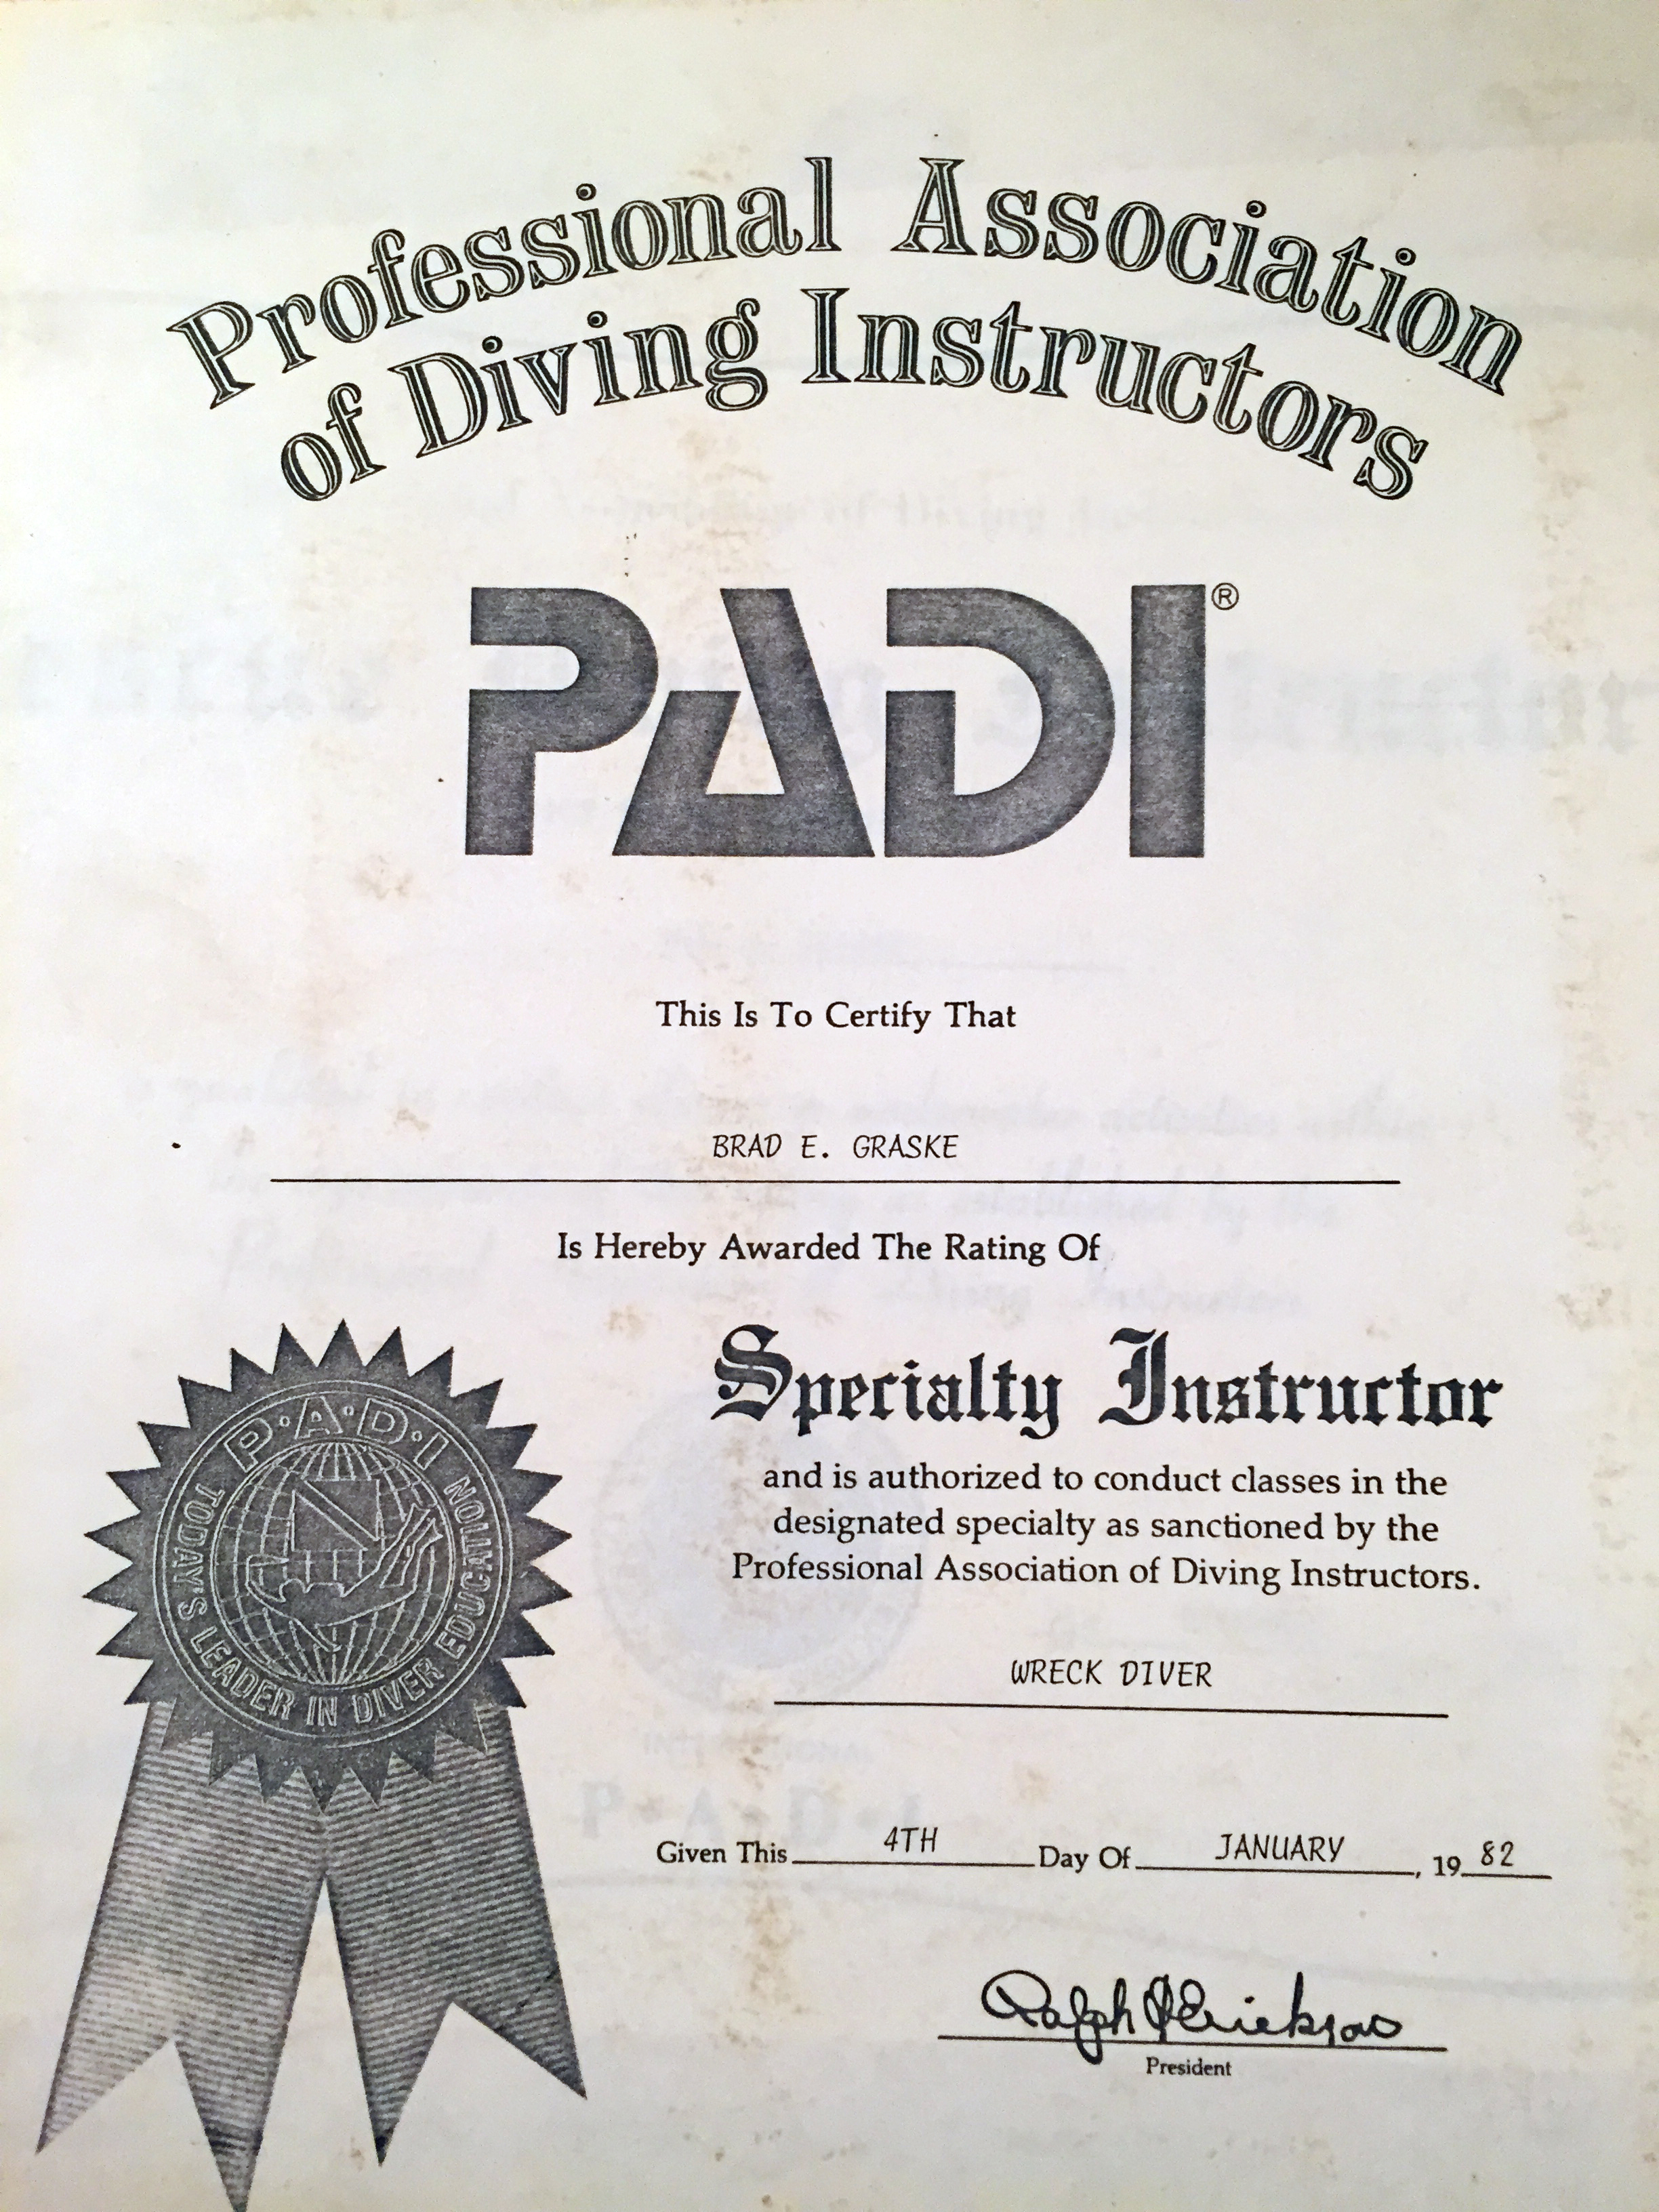 Professional Association
of Diving Instructors
PADI®
This Is To Certify That
BRAD E. GRASKE
Is Hereby Awarded The Rating Of
Specialty Instructor
and is authorized to conduct classes in the
designated specialty as sanctioned by the
Professional Association of Diving Instructors.
WRECK DIVER
P·A·D·I
TODAY'S LEADER IN DIVER EDUCATION
Given This 4TH Day Of JANUARY, 1982
Ralph D Erickson
President